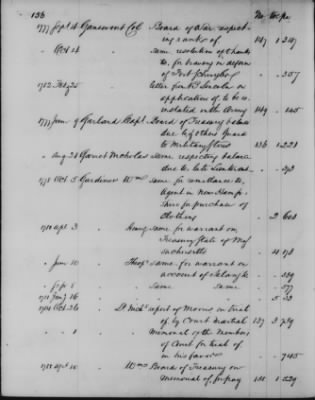 136 No. Vol. pa.
1777 Sept 4 Gansevoort Col Board of War respecting
rank of 147 1 249
Oct 4 same resolution of thanks
to, for bravery in defence
of Fort Schuyler 357
1782 Feb 25 letter from
application of to be re
instated in the Army 149 145
1777 June 9 Garland Capt. Board of Treasury balance
due to & others Guard
to Military Stores 136 1 221
Aug 28 Garnet Nicholas same respecting balance
due to late Lieutenant 293
1778 Oct 5 Gardiner Wm same for remittance to,
Agent in New Hamp
shire for purchase of
Clothing 2 603
1780 Apl 3 Henry same for warrant on
Treasury State of Mas
sachusetts 4
June 10 same for warrant on
account of
Sep 8 same same 577
1781 Jany 16 5
1781 Oct 26 report of on trial
of, by Court martial 137 3
1 Memorial of the Members
of Court for trial of
in his favor 745
1780 Apl 10 Wm Board of Treasury on
Memorial of for pay 1